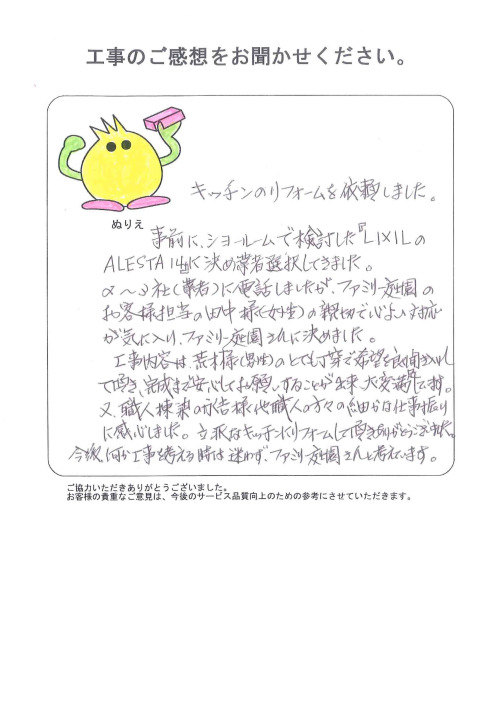 工事のご感想をお聞かせください。
キッチンのリフォームを依頼しました。
ぬりえ
事前に、ショールームで検討した『LIXILの
ALESTA 』に決め業者選択してきました。
2〜3社(業者)に電話しましたが、ファミリー庭園の
お客様担当の田中様(女性)の親切で心よい対応
が気に入り、ファミリー庭園さんに決めました。
工事内容は、荒木様(男性)のとても丁寧で希望を良聞き入れ
て頂き、完成まで安心してお願いすることが出来、大変満足です。
又、職人棟梁の 様や他職人の方々の細かな仕事振り
に感心しました。立派なキッチンにリフォームして頂きありがとうございました。
今後、何か工事を考える時は迷わず、ファミリー庭園さんと考えています。
ご協力いただきありがとうございました。
お客様の貴重なご意見は、今後のサービス品質向上のための参考にさせていただきます。